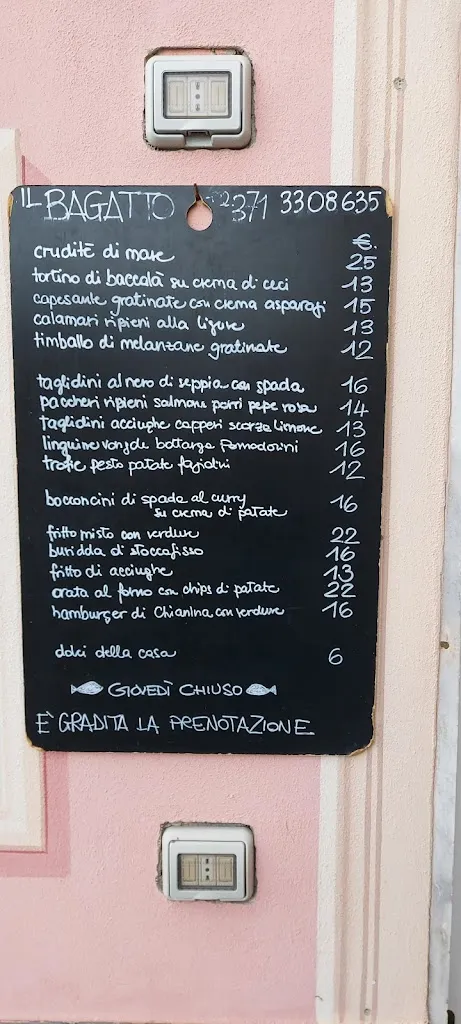 IL BAGATTO 371 3308635
€.
cruditè di mare 25
tortino di baccalà su crema di ceci 13
capesante gratinate con crema asparagi 15
calamari ripieni alla ligure 13
timballo di melanzane gratinate 12
taglidini al nero di seppia con spada 16
paccheri ripieni salmone porri pepe rosa 14
taglidini acciughe capperi scorza limone 13
linguine vongole bottarga pomodorini 16
trofie pesto patate fagiolini 12
bocconcini di spada al curry 16
su crema di patate
fritto misto con verdure 22
buridda di stoccafisso 16
fritto di acciughe 13
orata al forno con chips di patate 22
hamburger di Chianina con verdure 16
dolci della casa 6
GIOVEDÌ CHIUSO
È GRADITA LA PRENOTAZIONE